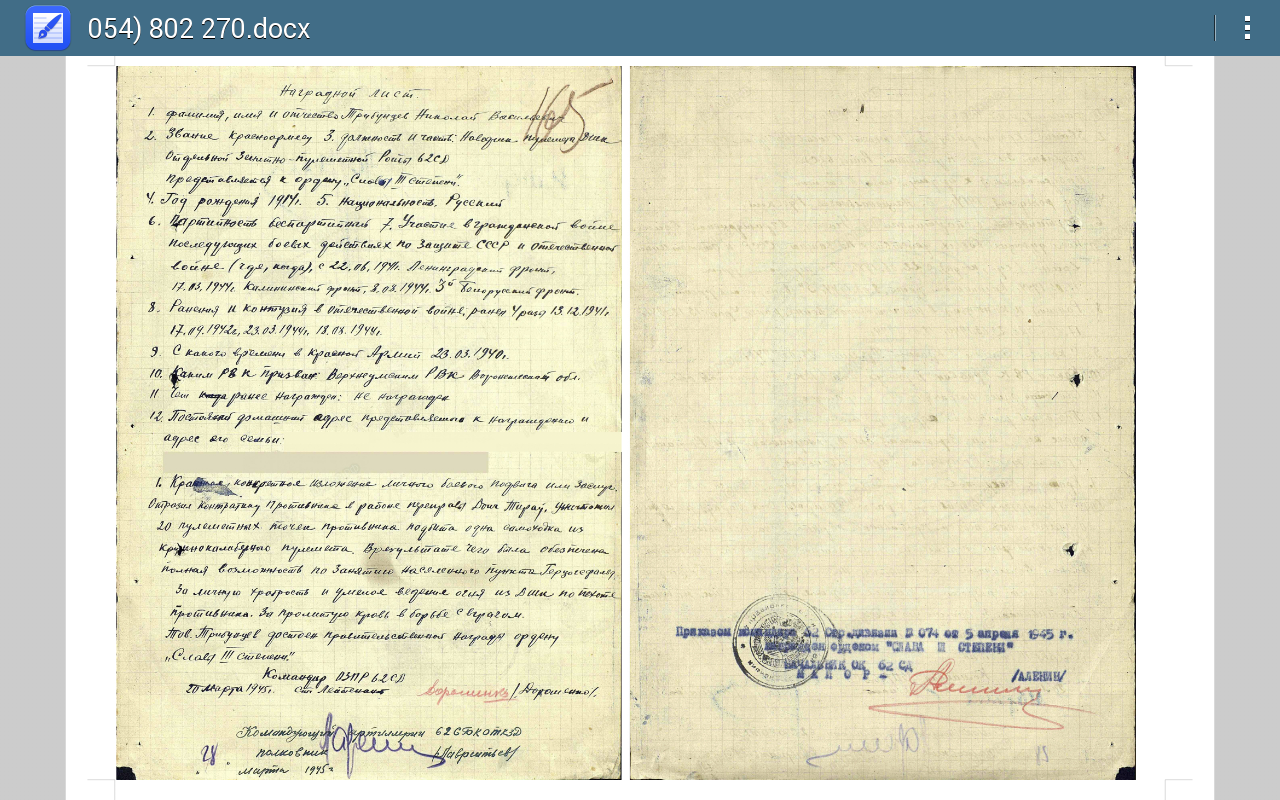 054) 802 270.docx
Наградной лист.
165
1. фамилия, имя и отчество Трибунцев Николай Васильевич
2. Звание Красноармеец 3. должность и часть: Наводчик пулемета Дшк
Отдельной Зенитно-пулеметной Роты 62СД
представляется к ордену „Славы III степени".
4. Год рождения 1914г. 5. Национальность Русский
6. Партийность беспартийный 7. Участие в гражданской войне
последующих боевых действиях по защите СССР и отечественной
войне (где, когда), с 22.06.1941г. Ленинградский фронт,
17.03.1944г. Калининский фронт, 8.08.1944г. 3й Белорусский фронт.
8. Ранения и контузия в отечественной войне, ранен 4 раза 13.12.1941г.
17.09.1942г., 23.03.1944г. 18.08.1944г.
9. С какого времени в Красной Армии 23.03.1940г.
10. Каким РВК призван: РВК обл.
11 Чем ранее награжден: не награжден
12. Постоянный домашний адрес представляемого к награждению и
адрес его семьи:
1. Краткое, конкретное изложение личного боевого подвига или заслуг.
Отражая контратаку противника в районе переправы уничтожил
20 пулеметных точек противника подбита одна самоходка из
крупнокалиберного пулемета. В результате чего была обеспечена
полная возможность по занятию населенного пункта
За личную храбрость и умелое ведение огня из Дшк по пехоте
противника. За пролитую кровь в борьбе с врагом.
Тов. Трибунцев достоен правительственной награды ордену
„Славы III степени."
Командир ОЗПР 62СД
20 Марта 1945г. ст. Лейтенант /Дорошенко/.
Командующий артиллерии 62 СД
полковник /Лаврентьев/
28 марта 1945г
Приказом 62 Стр.дивизии № 074 от 5 апреля 1945 г.
награжден орденом "СЛАВА III СТЕПЕНИ"
НАЧАЛЬНИК ОК 62 СД
МАЙОР - /АЛЕНИН/